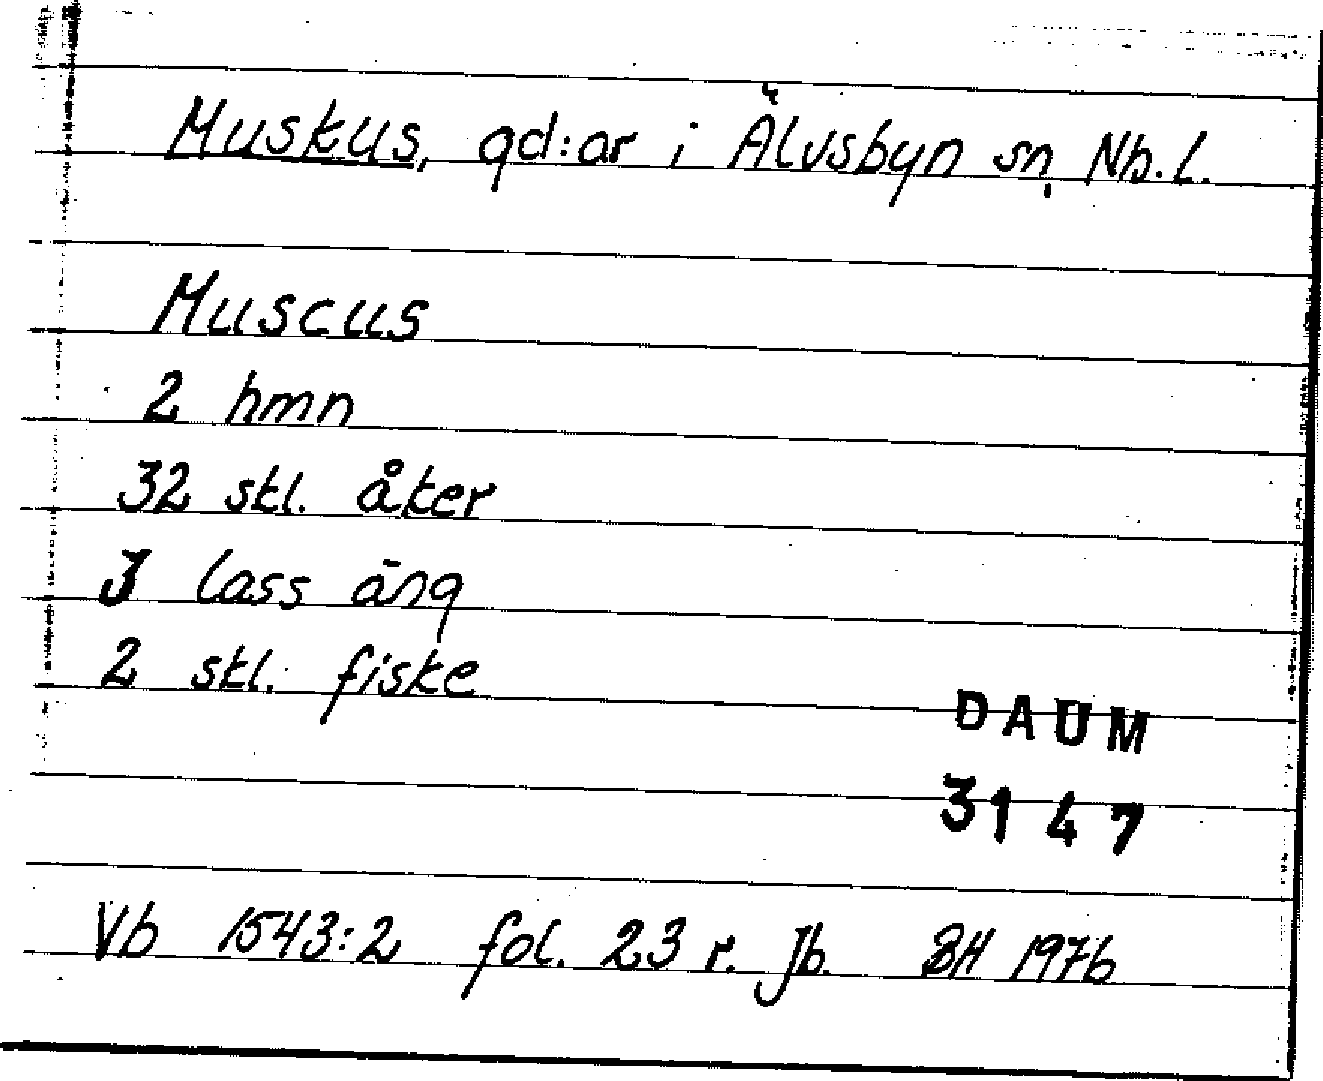 Muskus, gd:ar i Älvsbyn sn, Nb.l.
Muscus
2 hmn
32 skl. åker
3 lass äng
2 skl. fiske
DAUM
3147
Vb 1543:2 fol. 23 r. Jb. BH 1976